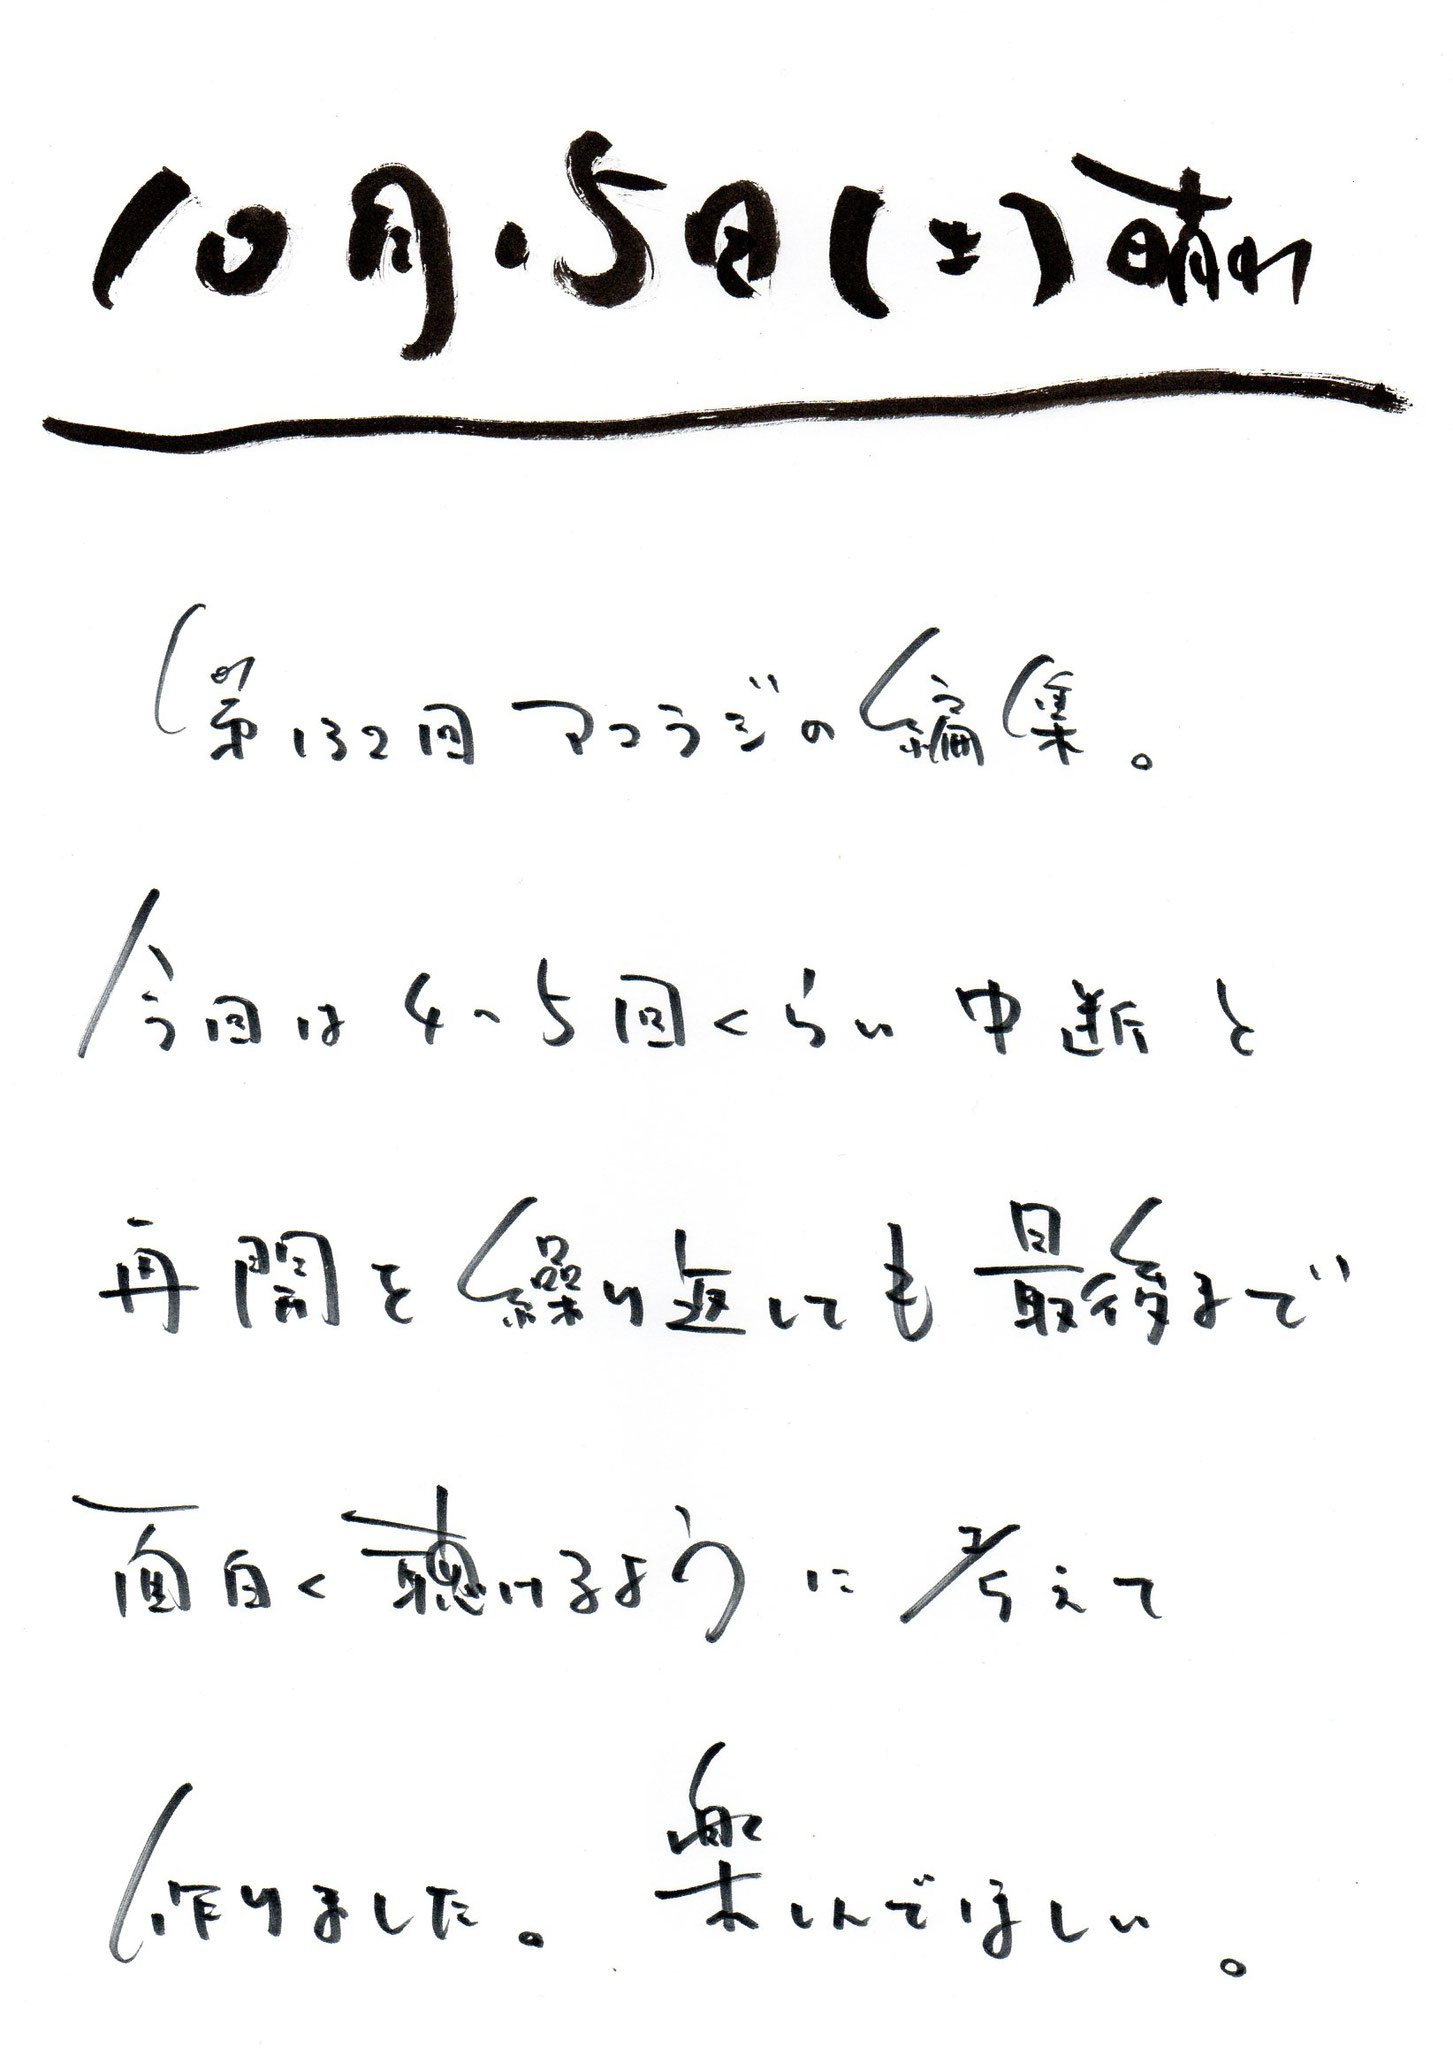 10月.5日(土)晴れ
第132回マコラジの編集。
今回は4〜5回くらい中断と
再開を繰り返しても最後まで
面白く聴けるように考えて
作りました。楽しんでほしい。